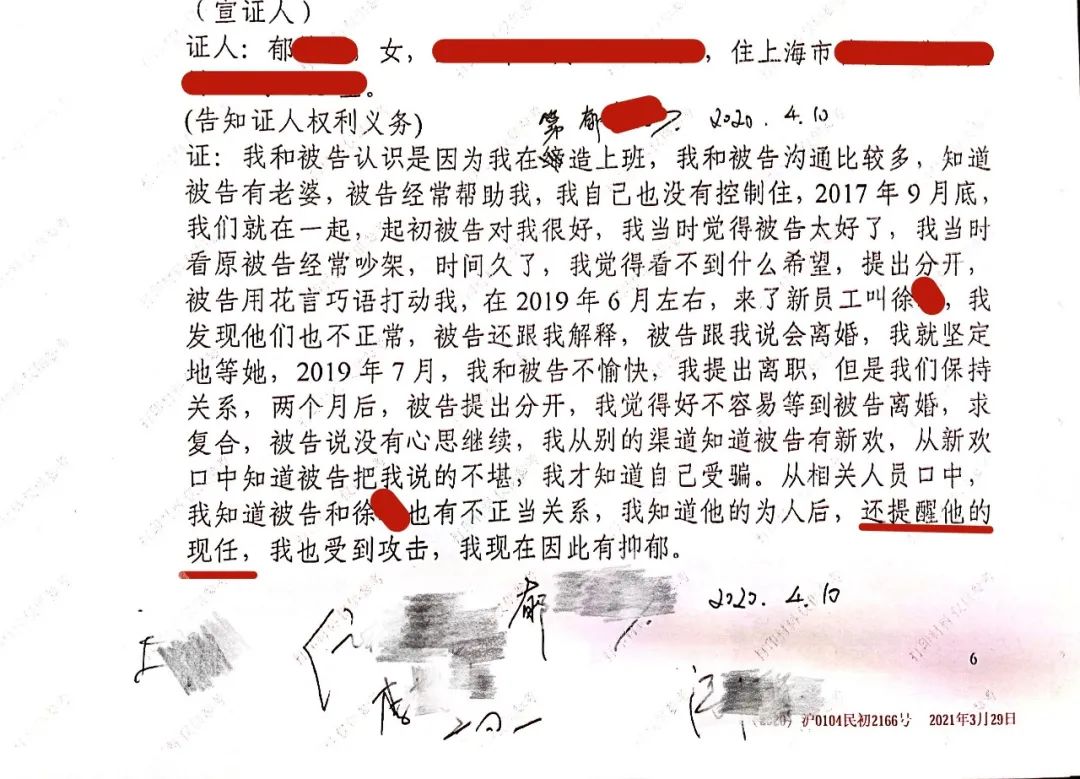 （宣证人）
证人：郁 女， ，住上海市
。
(告知证人权利义务) 郁 2020.4.10
证：我和被告认识是因为我在缔造上班，我和被告沟通比较多，知道
被告有老婆，被告经常帮助我，我自己也没有控制住，2017年9月底，
我们就在一起，起初被告对我很好，我当时觉得被告太好了，我当时
看原被告经常吵架，时间久了，我觉得看不到什么希望，提出分开，
被告用花言巧语打动我，在2019年6月左右，来了新员工叫徐 ，我
发现他们也不正常，被告还跟我解释，被告跟我说会离婚，我就坚定
地等她，2019年7月，我和被告不愉快，我提出离职，但是我们保持
关系，两个月后，被告提出分开，我觉得好不容易等到被告离婚，求
复合，被告说没有心思继续，我从别的渠道知道被告有新欢，从新欢
口中知道被告把我说的不堪，我才知道自己受骗。从相关人员口中，
我知道被告和徐 也有不正当关系，我知道他的为人后，还提醒他的
现任，我也受到攻击，我现在因此有抑郁。
郁 2020.4.10
6
（2020）沪0104民初2166号 2021年3月29日